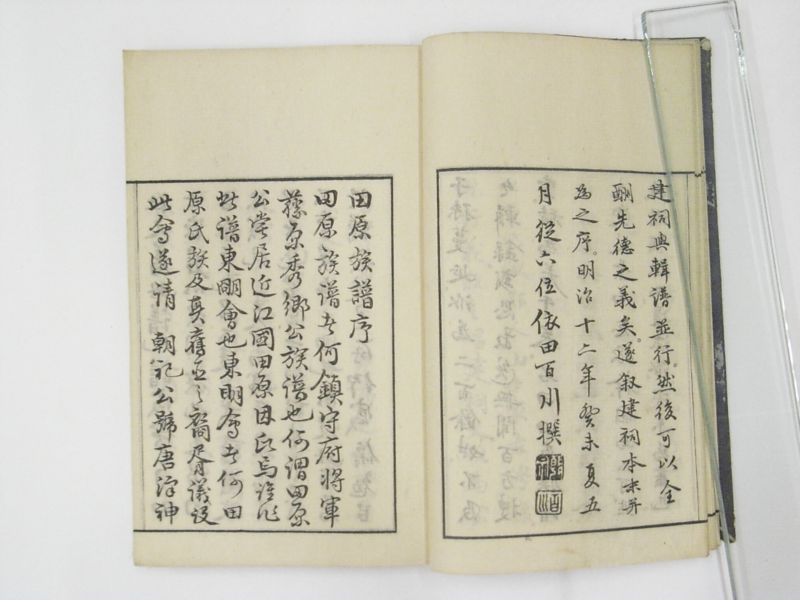 建祠與輯譜並行然後可以全
酬先德之義矣遂叙建祠本末并
為之序明治十二年癸未夏五
月從六位依田百川撰
田原族譜序
田原族譜者何鎮守府將軍
藤原秀鄉公族譜也何謂田原
公嘗居近江國田原因氏焉誰作
此譜東明會也東明會者何田
原氏族及其舊臣之裔胥議設
此會遂請 朝祀公號唐澤神